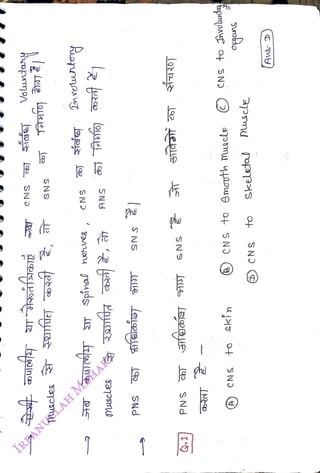 → ऐसी कपालीय या मेरुतंत्रिकाएं जब CNS का संबंध Voluntary
Muscles से स्थापित करती है, तो SNS का निर्माण होता है।
→ जब कपालीय या Spinal nerves, CNS का संबंध Involuntory
Muscles से स्थापित करती है, तो ANS का निर्माण करती है।
→ PNS का अधिकांश भाग SNS है।
Q.1 PNS का अधिकांश भाग SNS है जो आवेगों का संचरण
करता है –
Ⓐ CNS to skin Ⓑ CNS to Smooth Muscle Ⓒ CNS to Involuntary
organs
Ⓓ CNS to Skeletal Muscle Ans-D
IRFANULLAH